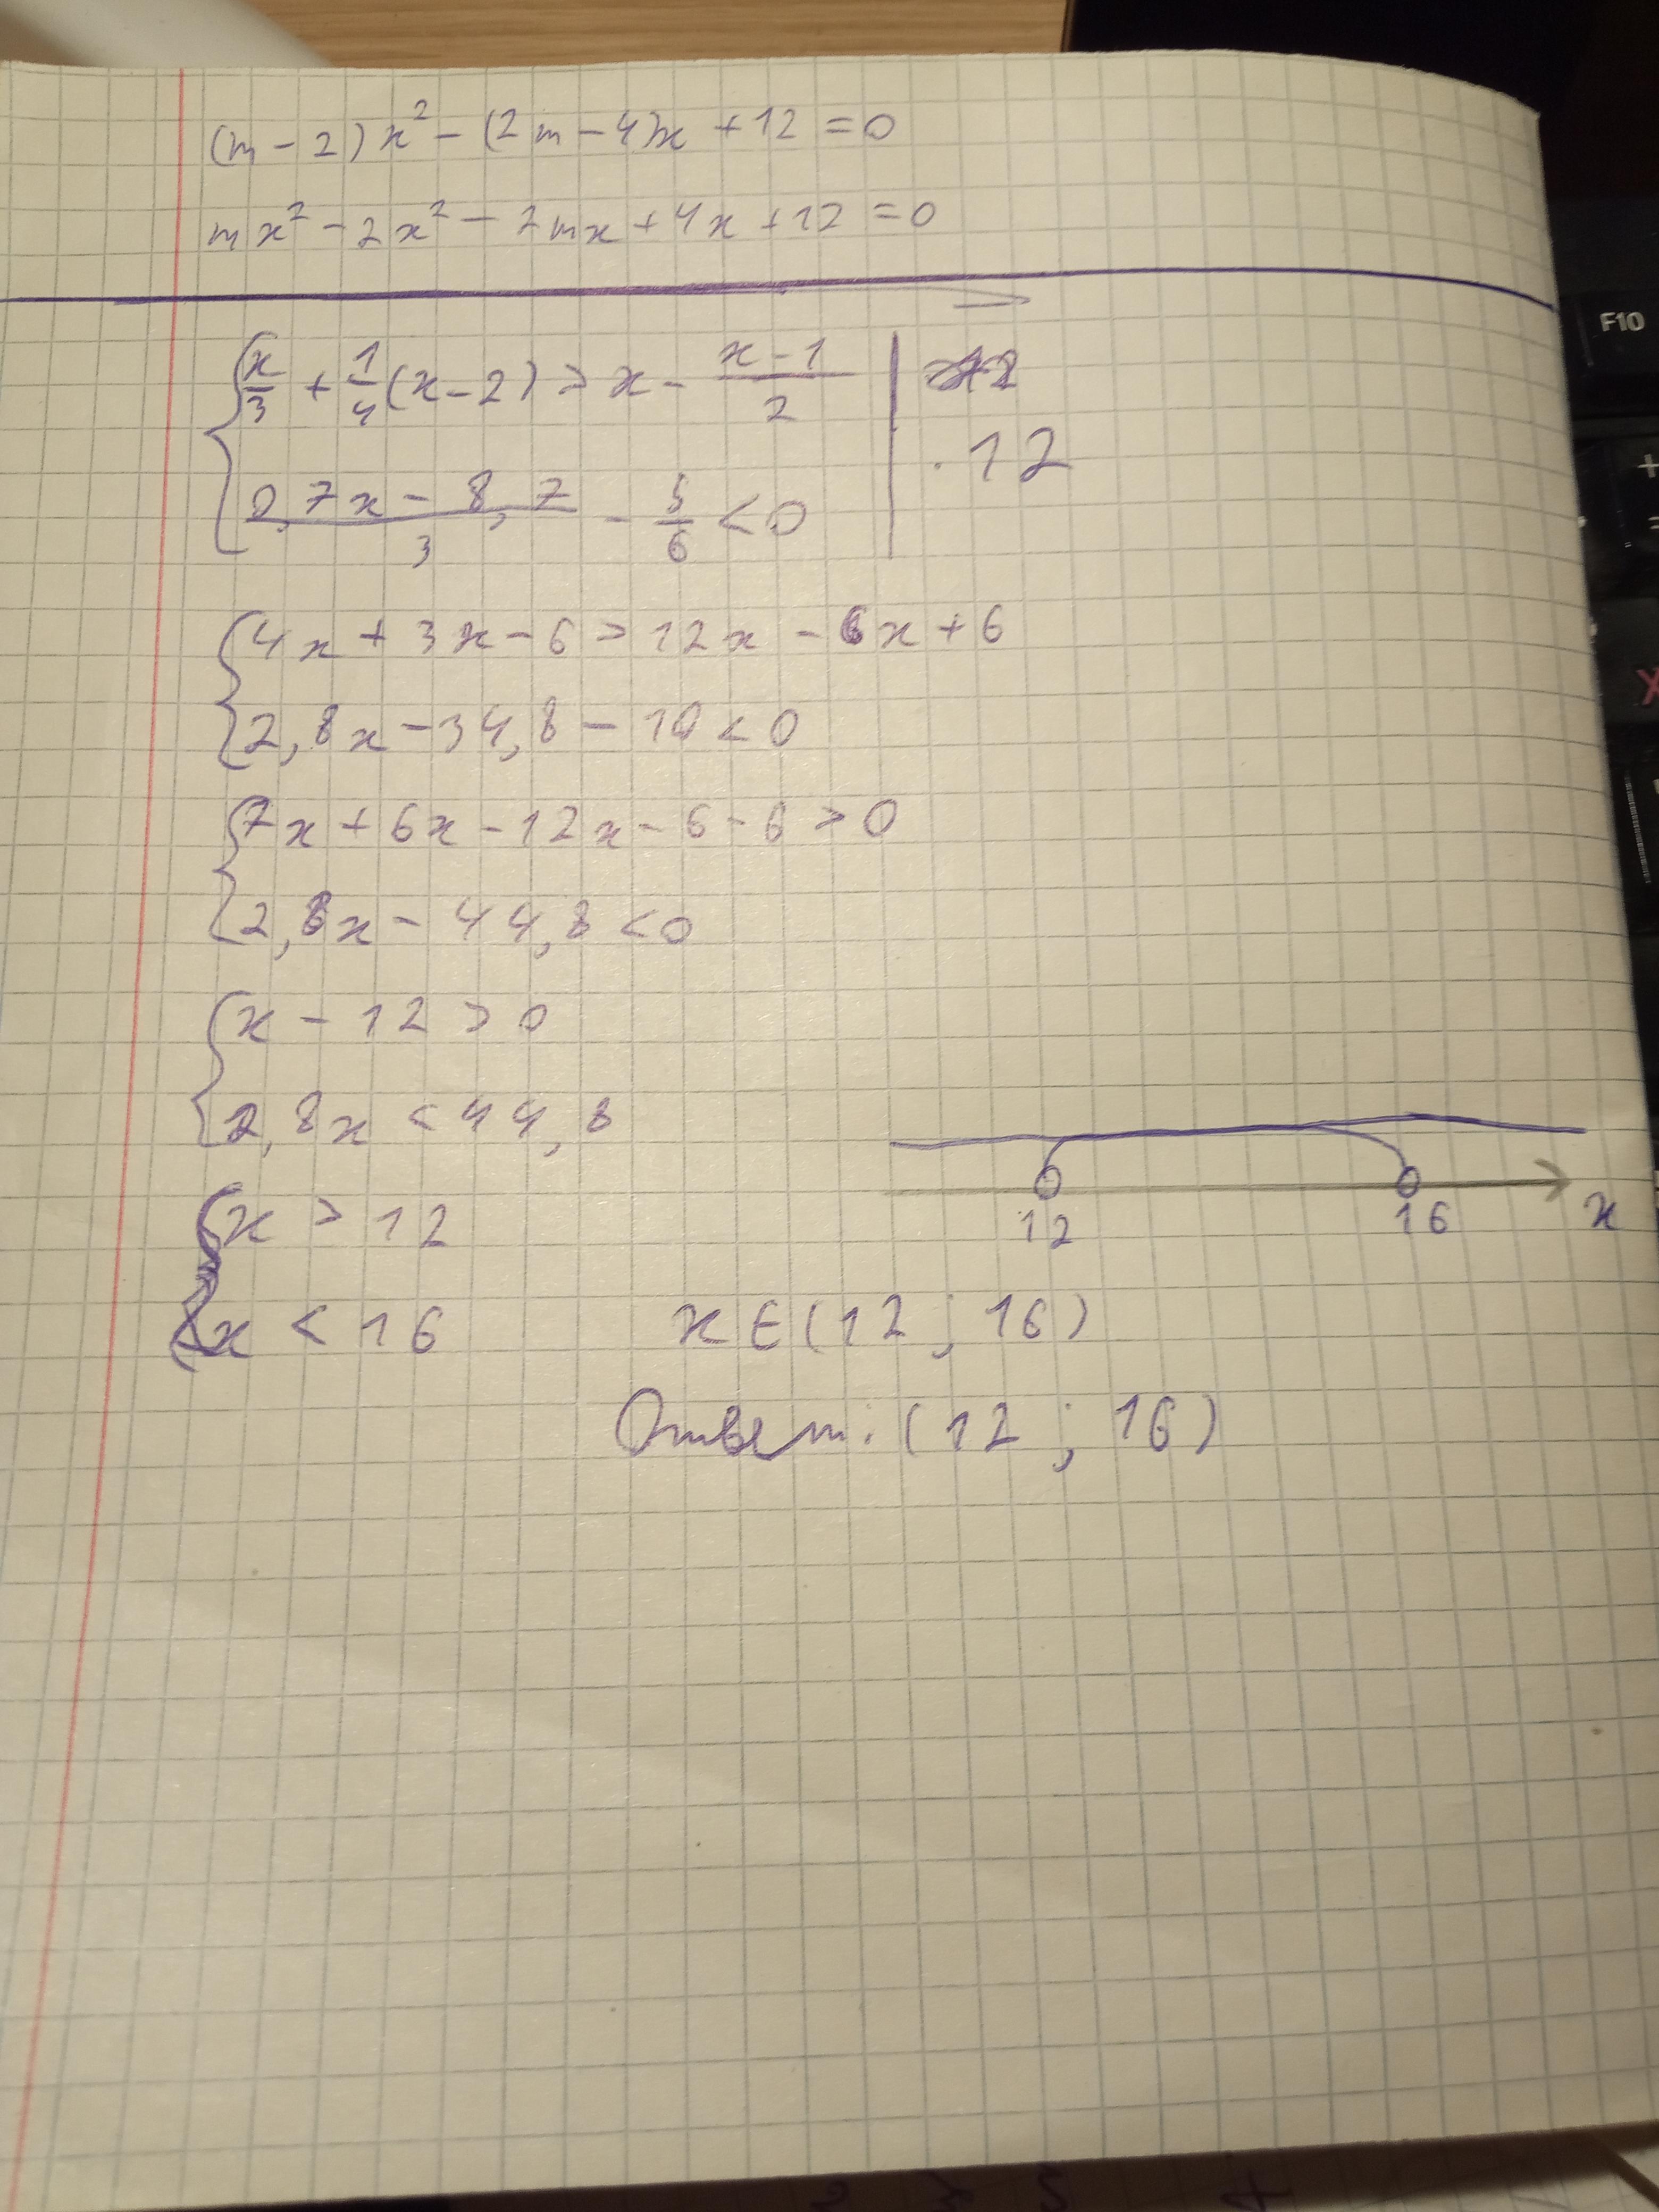 (m-2)x² - (2m-4)x + 12 = 0
mx² - 2x² - 2mx + 4x + 12 = 0
x/3 + 1/4(x-2) > x - (x-1)/2
·12
(0,7x - 8,7)/3 - 5/6 < 0
4x + 3x - 6 > 12x - 6x + 6
2,8x - 34,8 - 10 < 0
7x + 6x - 12x - 6 - 6 > 0
2,8x - 44,8 < 0
x - 12 > 0
2,8x < 44,8
x > 12
12 16 x
x < 16 x ∈ (12 ; 16)
Ответ: (12 ; 16)
F10
+
=
X